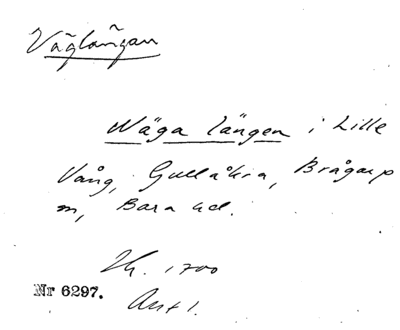 Väglängan
Wäga längen i Lille
Vång, Gullåkra, Brågarp
m, Bara hd.
1700
Nr 6297.